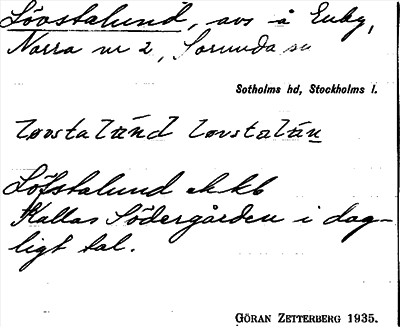 Lövstalund, avs å Enby,
Norra nr 2, Sorunda sn
Sotholms hd, Stockholms l.
lovstalund lovstalun
Löfstalund ekkb
Kallas Södergården i dag-
ligt tal.
GÖRAN ZETTERBERG 1935.